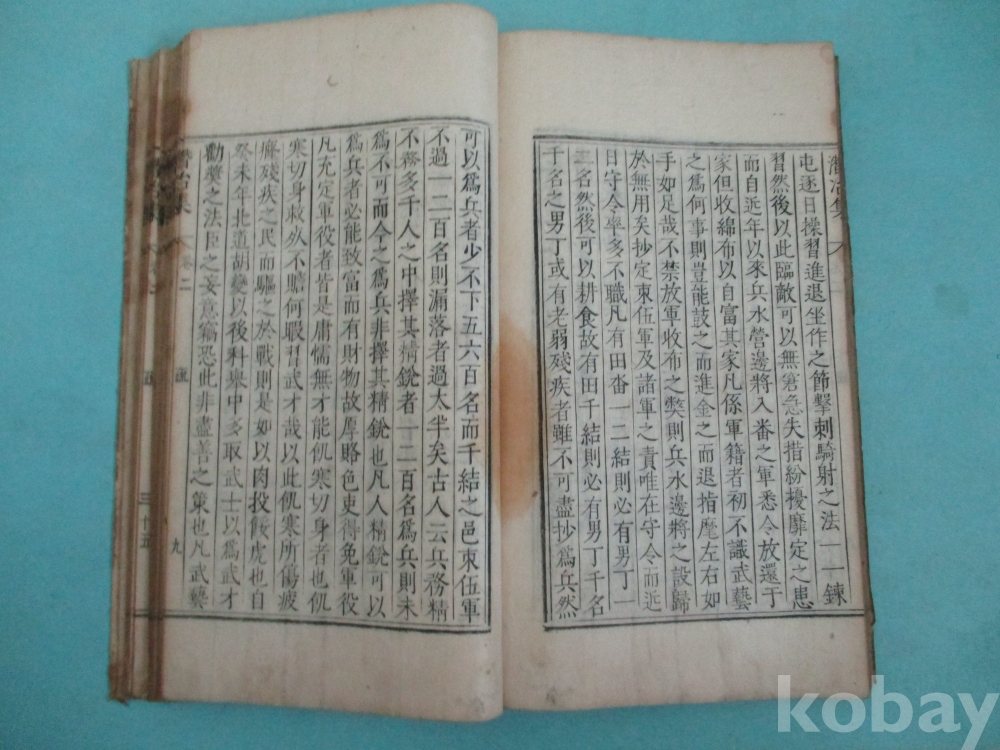 屯逐日操習進退坐作之節擊刺騎射之法一一鍊
習然後以此臨敵可以無窘急失措紛擾靡定之患
而自近年以來兵水營邊將入番之軍悉令放還于
家但收綿布以自富其家凡係軍籍者初不識武藝
之爲何事則豈能鼓之而進金之而退指麾左右如
手如足哉不禁放軍收布之獘則兵水邊將之設歸
於無用矣抄定束伍軍及諸軍之責唯在守令而近
日守令率多不職凡有田畓一二結則必有男丁一
二名然後可以耕食故有田千結則必有男丁千名
千名之男丁或有老弱殘疾者雖不可盡抄爲兵然
可以爲兵者少不下五六百名而千結之邑束伍軍
不過一二百名則漏落者過太半矣古人云兵務精
不務多千人之中擇其精銳者一二百名爲兵則未
爲不可而今之爲兵非擇其精銳也凡人精銳可以
爲兵者必能致富而有財物故厚賂色吏得免軍役
凡充定軍役者皆是庸懦無才能飢寒切身者也飢
寒切身救死不贍何暇習武才哉以此飢寒所傷疲
癃殘疾之民而驅之於戰則是如以肉投餒虎也自
癸未年北道胡變以後科舉中多取武士以爲武才
勸奬之法臣之妄意竊恐此非盡善之策也凡武藝
卷二
疏
九